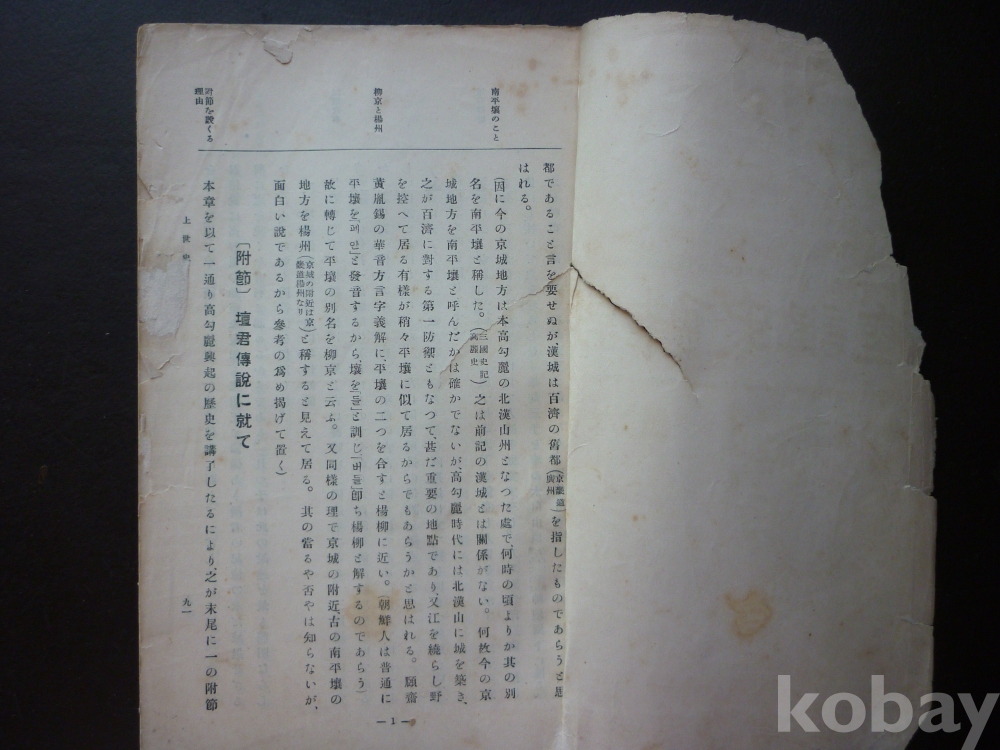 南平壤のこと
柳京と楊州
附節を設くる
理由
都であること言を要せぬが、漢城は百濟の舊都(京畿道廣州)を指したものであらうと思
はれる。
(因に今の京城地方は本高勾麗の北漢山州となつた處で、何時の頃よりか其の別
名を南平壤と稱した。(三國史記高麗史)之は前記の漢城とは關係がない。何故今の京
城地方を南平壤と呼んだかは確かでないが高勾麗時代には北漢山に城を築き、
之が百濟に對する第一防禦ともなつて、甚だ重要の地點であり、又江を繞らし野
を控へて居る有樣が稍々平壤に似て居るからでもあらうかと思はれる。頤齋
黃胤錫の華音方言字義解に、平壤の二つを合すと楊柳に近い。(朝鮮人は普通に
平壤を「페안」と發音するから、壤を「들」と訓じ「버들」卽ち楊柳と解するのであらう)
故に轉じて平壤の別名を柳京と云ふ。又同樣の理で京城の附近、古の南平壤の
地方を楊州(京城の附近は京畿道楊州なり)と稱すると見えて居る。其の當るや否やは知らないが、
面白い說であるから參考の爲め揭げて置く)
〔附節〕 壇君傳說に就て
本章を以て一通り高勾麗興起の歷史を講了したるにより、之が末尾に一の附節
上世史
九一
— 1 —
kobay